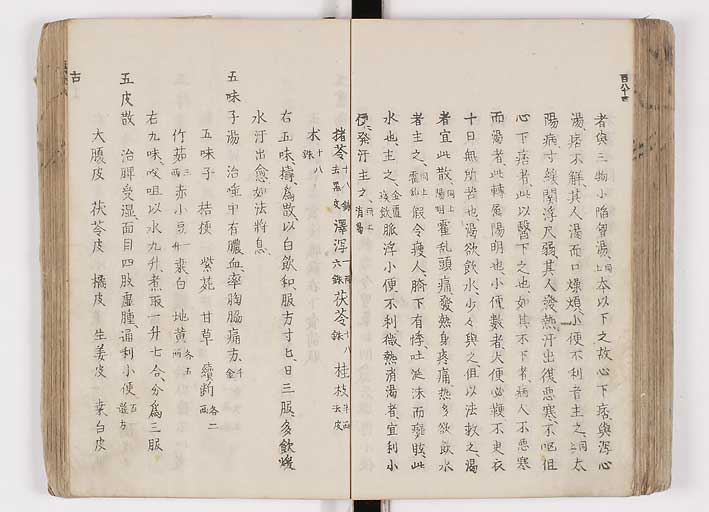 百八十四
者与三物小陷胷湯、同上本以下之故心下痞與瀉心
湯、痞不解、其人渴而口燥煩、小便不利者主之、同上太
陽病寸緩関浮尺弱、其人發熱、汗出復惡寒、不嘔但
心下痞者、此以醫下之也如其不下者、病人不惡寒
而渴者此轉属陽明也小便數者大便必鞕不更衣
十日無所苦也渴欲飲水、少々與之、但以法救之、渴
者宜此散、同上陽明霍乱頭痛發熱身疼痛、热多欲飲水
者主之、同上霍乱假令瘦人、臍下有悸、吐涎沫而癲眩、此
水也、主之、金匱痰飲脈浮小便不利微熱消渴者、宜利小
便、發汗主之、同上消渴
猪苓十八銖去黒皮 澤瀉一両六銖 茯苓十八銖 桂枝半両去皮
朮十八銖
右五味、擣、為散、以白飲和、服方寸匕、日三服、多飲煖
水汗出愈如法將息、
五味子湯 治唾中有膿血、牽胸脇痛方、千金
五味子 桔梗 紫菀 甘草 續断各二両
竹茹三両 赤小豆一升 桑白 地黄各五両
右九味、㕮咀以水九升、煮取一升七合、分為三服
五皮散 治脾受湿面目四肢虚腫、通利小便、百一選方
大腹皮 茯苓皮 橘皮 生姜皮 桑白皮
古